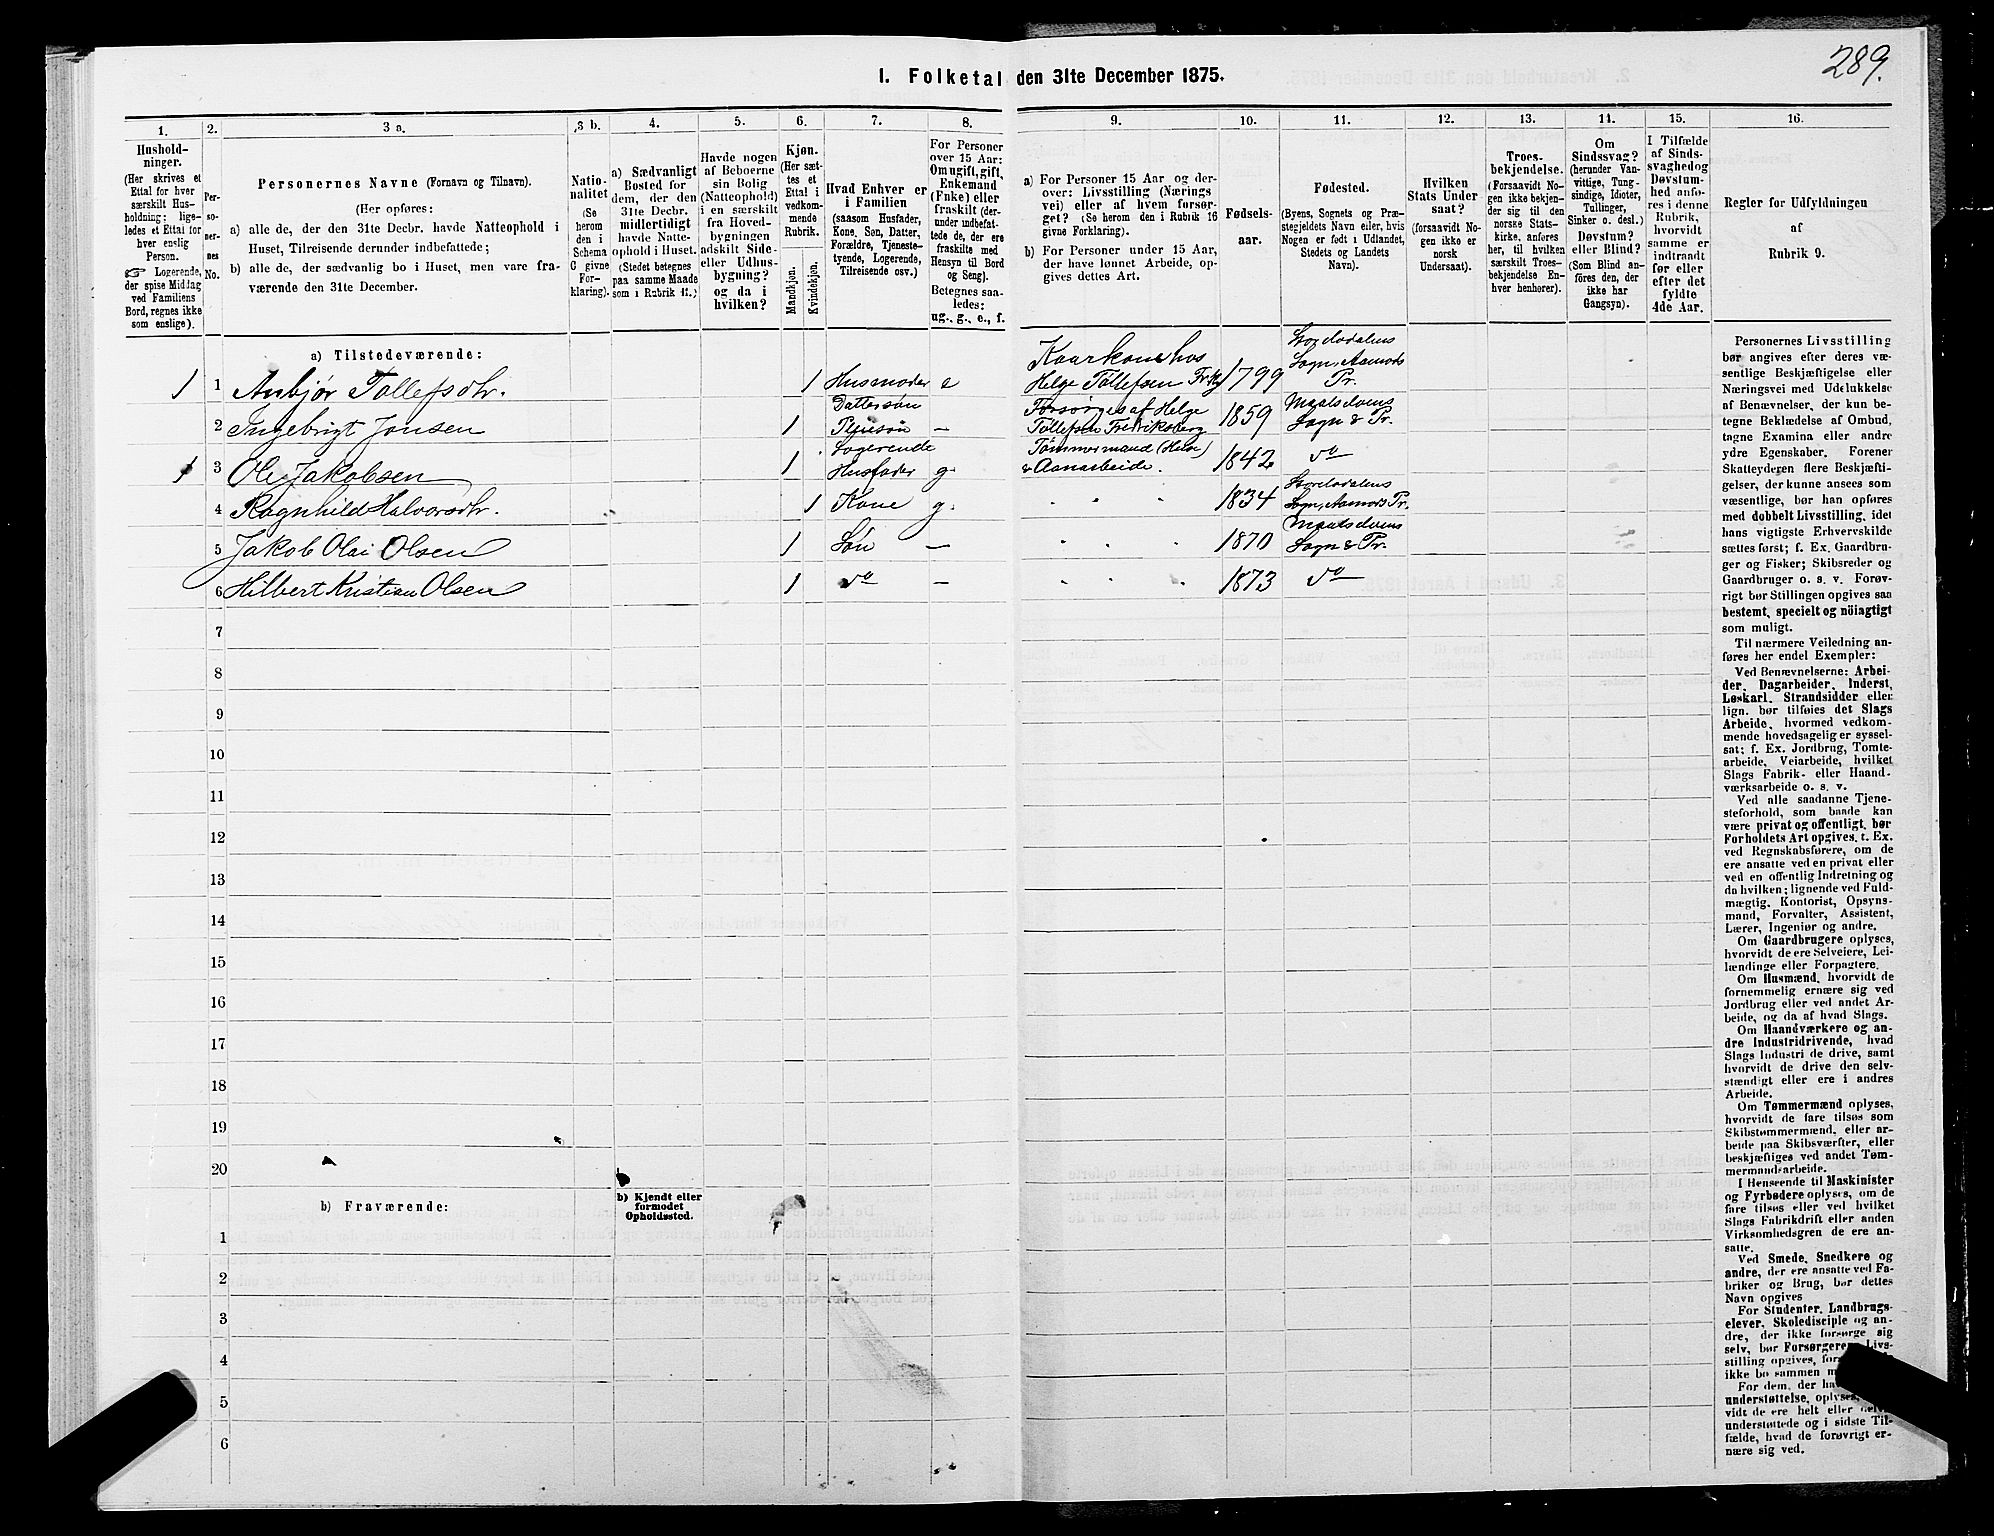 289.
1. Folketal den 31te December 1875.
1.
Hushold-
ninger.
(Her skrives et
Ettal for hver
særskilt Hus-
holdning; lige-
ledes et Ettal for
hver enslig
Person.
☞ Logerende,
der spise Middag
ved Familiens
Bord, regnes ikke
som enslige).
2.
Per-
so-
ner-
nes
No.
3 a.
Personernes Navne (Fornavn og Tilnavn).
(Her opføres:
a) alle de, der den 31te Decbr. havde Natteophold i
Huset, Tilreisende derunder indbefattede;
b) alle de, der sædvanlig bo i Huset, men vare fra-
værende den 31te December.
3 b.
Natio-
nalitet
(Se
herom
den i
Schema
C givne
For-
klaring).
4.
a) Sædvanligt
Bosted for
dem, der den
31te Decbr.
midlertidigt
havde Natte-
ophold i Huset.
(Stedet betegnes
paa samme Maade
som i Rubrik 11.)
5.
Havde nogen
af Beboerne
sin Bolig
(Natteophold)
i en særskilt
fra Hoved-
bygningen
adskilt Side-
eller Udhus-
bygning?
og da i
hvilken?
6.
Kjøn.
(Her sæt-
tes et
Ettal i
vedkom-
mende
Rubrik.
Mandkjøn.
Kvindekjøn.
7.
Hvad Enhver er
i Familien
(saasom Husfader,
Kone, Søn, Datter,
Forældre, Tjeneste-
tyende, Logerende,
Tilreisende osv.)
8.
For Personer
over 15 Aar:
Om ugift, gift,
Enkemand
(Enke) eller
fraskilt (der-
under indbefat-
tede de, der ere
fraskilte med
Hensyn til Bord
og Seng).
Betegnes saa-
ledes:
ug., g., e., f.
9.
a) For Personer 15 Aar og der-
over: Livsstilling (Nærings
vei) eller af hvem forsør-
get? (Se herom den i Rubrik 16
givne Forklaring).
b) For Personer under 15 Aar,
der have lønnet Arbeide, op-
gives dettes Art.
10.
Fødsels-
aar.
11.
Fødested.
(Byens, Sognets og Præ-
stegjeldets Navn eller, hvis
Nogen er født i Udlandet,
Stedets og Landets
Navn).
12.
Hvilken
Stats Under
saat?
(forsaavidt No-
gen ikke er
norsk
Undersaat).
13.
Troes-
bekjendelse.
(Forsaavidt No-
gen ikke bekjen-
der sig til den
norske Stats-
kirke, anføres
her, til hvilken
særskilt Troes-
bekjendelse En-
hver henhører).
14.
Om
Sindssvag?
(herunder Van-
vittige, Tung-
sindige, Idioter,
Tullinger,
Sinker o. desl.)
Døvstum?
eller Blind?
(Som Blind an-
føres den, der
ikke har
Gangsyn).
15.
I Tilfælde
af Sinds-
svaghed og
Døvstum-
hed anfø-
res i denne
Rubrik,
hvorvidt
samme er
indtraadt
før eller
efter det
fyldte
4de Aar.
16.
Regler for Udfyldningen
af
Rubrik 9.
a) Tilstedeværende:
1 1 Anbjør Tollefsdtr. 1 Husmoder e Kaarkone hos Helge Tollefsen 1799 Sogn, Aamots Pr.
2 Ingebrigt Jonsen 1 Dattersøn Pleiesøn — Forsørges af Helge Tollefsen Fredriksberg 1859 Maalselvens Sogn & Pr.
1 3 Ole Jakobsen 1 Logerende Husfader g. Tømmermand & Aanarbeide. 1842 do
4 Ragnhild Halvorsdtr. 1 Kone g. " " 1834 Sogn, Aamots Pr.
5 Jakob Olai Olsen 1 Søn — " " " 1870 Maalselvens Sogn & Pr.
6 Hilbert Kristian Olsen 1 do — " " " 1873 do
7
8
9
10
11
12
13
14
15
16
17
18
19
20
b) Fraværende:
b) Kjendt eller
formodet
Opholdssted.
1
2
3
4
5
6
Personernes Livsstilling
bør angives efter deres væ-
sentlige Beskjæftigelse eller
Næringsvei med Udelukkelse
af Benævnelser, der kun be-
tegne Beklædelse af Ombud,
tagne Examina eller andre
ydre Egenskaber. Forener
Skatteyderen flere Beskjæfti-
gelser, der kunne ansees som
væsentlige, bør han opføres
med dobbelt Livsstilling, idet
hans vigtigste Erhvervskilde
sættes først; f. Ex. Gaardbru-
ger og Fisker; Skibsreder og
Gaardbruger o. s. v. Forøv-
rigt bør Stillingen opgives saa
bestemt, specielt og nöiagtigt
som muligt.
Til nærmere Veiledning an-
føres her endel Exempler:
Ved Benævnelserne: Arbei-
der, Dagarbeider, Inderst,
Løskarl, Strandsidder eller
lign. bør tilføies det Slags
Arbeide, hvormed vedkom-
mende hovedsagelig er syssel-
sat; f. Ex. Jordbrug, Tomte-
arbeide, Veiarbeide, hvilket
Slags Fabrik- eller Haand-
værksarbeide o. s. v.
Ved alle saadanne Tjene-
steforhold, som baade kan
være privat og offentligt, bør
Forholdets Art opgives, t. Ex.
ved Regnskabsførere, om de
ere ansatte ved en privat eller
ved en offentlig Indretning og
da hvilken; lignende ved Fuld-
mægtig, Kontorist, Opsyns-
mand, Forvalter, Assistent,
Lærer, Ingeniør og andre.
Om Gaardbrugere oplyses,
hvorvidt de ere Selveiere, Lei-
lændinge eller Forpagtere.
Om Husmænd, hvorvidt de
fornemmelig ernære sig ved
Jordbrug eller ved andet Ar-
beide, og da af hvad Slags.
Om Haandværkere og an-
dre Industridrivende, hvad
Slags Industri de drive, samt
hvorvidt de drive den selv-
stændigt eller ere i andres
Arbeide.
Om Tømmermænd oplyses,
hvorvidt de fare tilsøs som
Skibstømmermænd, eller ar-
beide paa Skibsværfter, eller
beskjæftiges ved andet Tøm-
mermandsarbeide.
I Henseende til Maskinister
og Fyrbødere oplyses, om de
fare tilsøs eller ved hvilket
Slags Fabrikdrift eller anden
Virksomhedsgren de ere an-
satte.
Ved Smede, Snedkere og
andre, der ere ansatte ved Fa-
briker og Brug, bør dettes
Navn opgives
For Studenter, Landbrugs-
elever, Skoledisciple og an-
dre, der ikke forsørge sig
selv, bør Forsørgerens Livs-
stilling opgives,
ikke bo sammen
For dem, der
understøttelse, oplyses,
vidt de ere helt eller
understøttede og i sidste Til-
fælde, hvad de forøvrigt er-
nære sig ved.